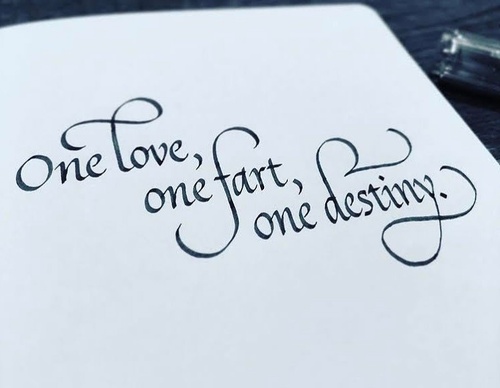 One love,
one fart,
one destiny.